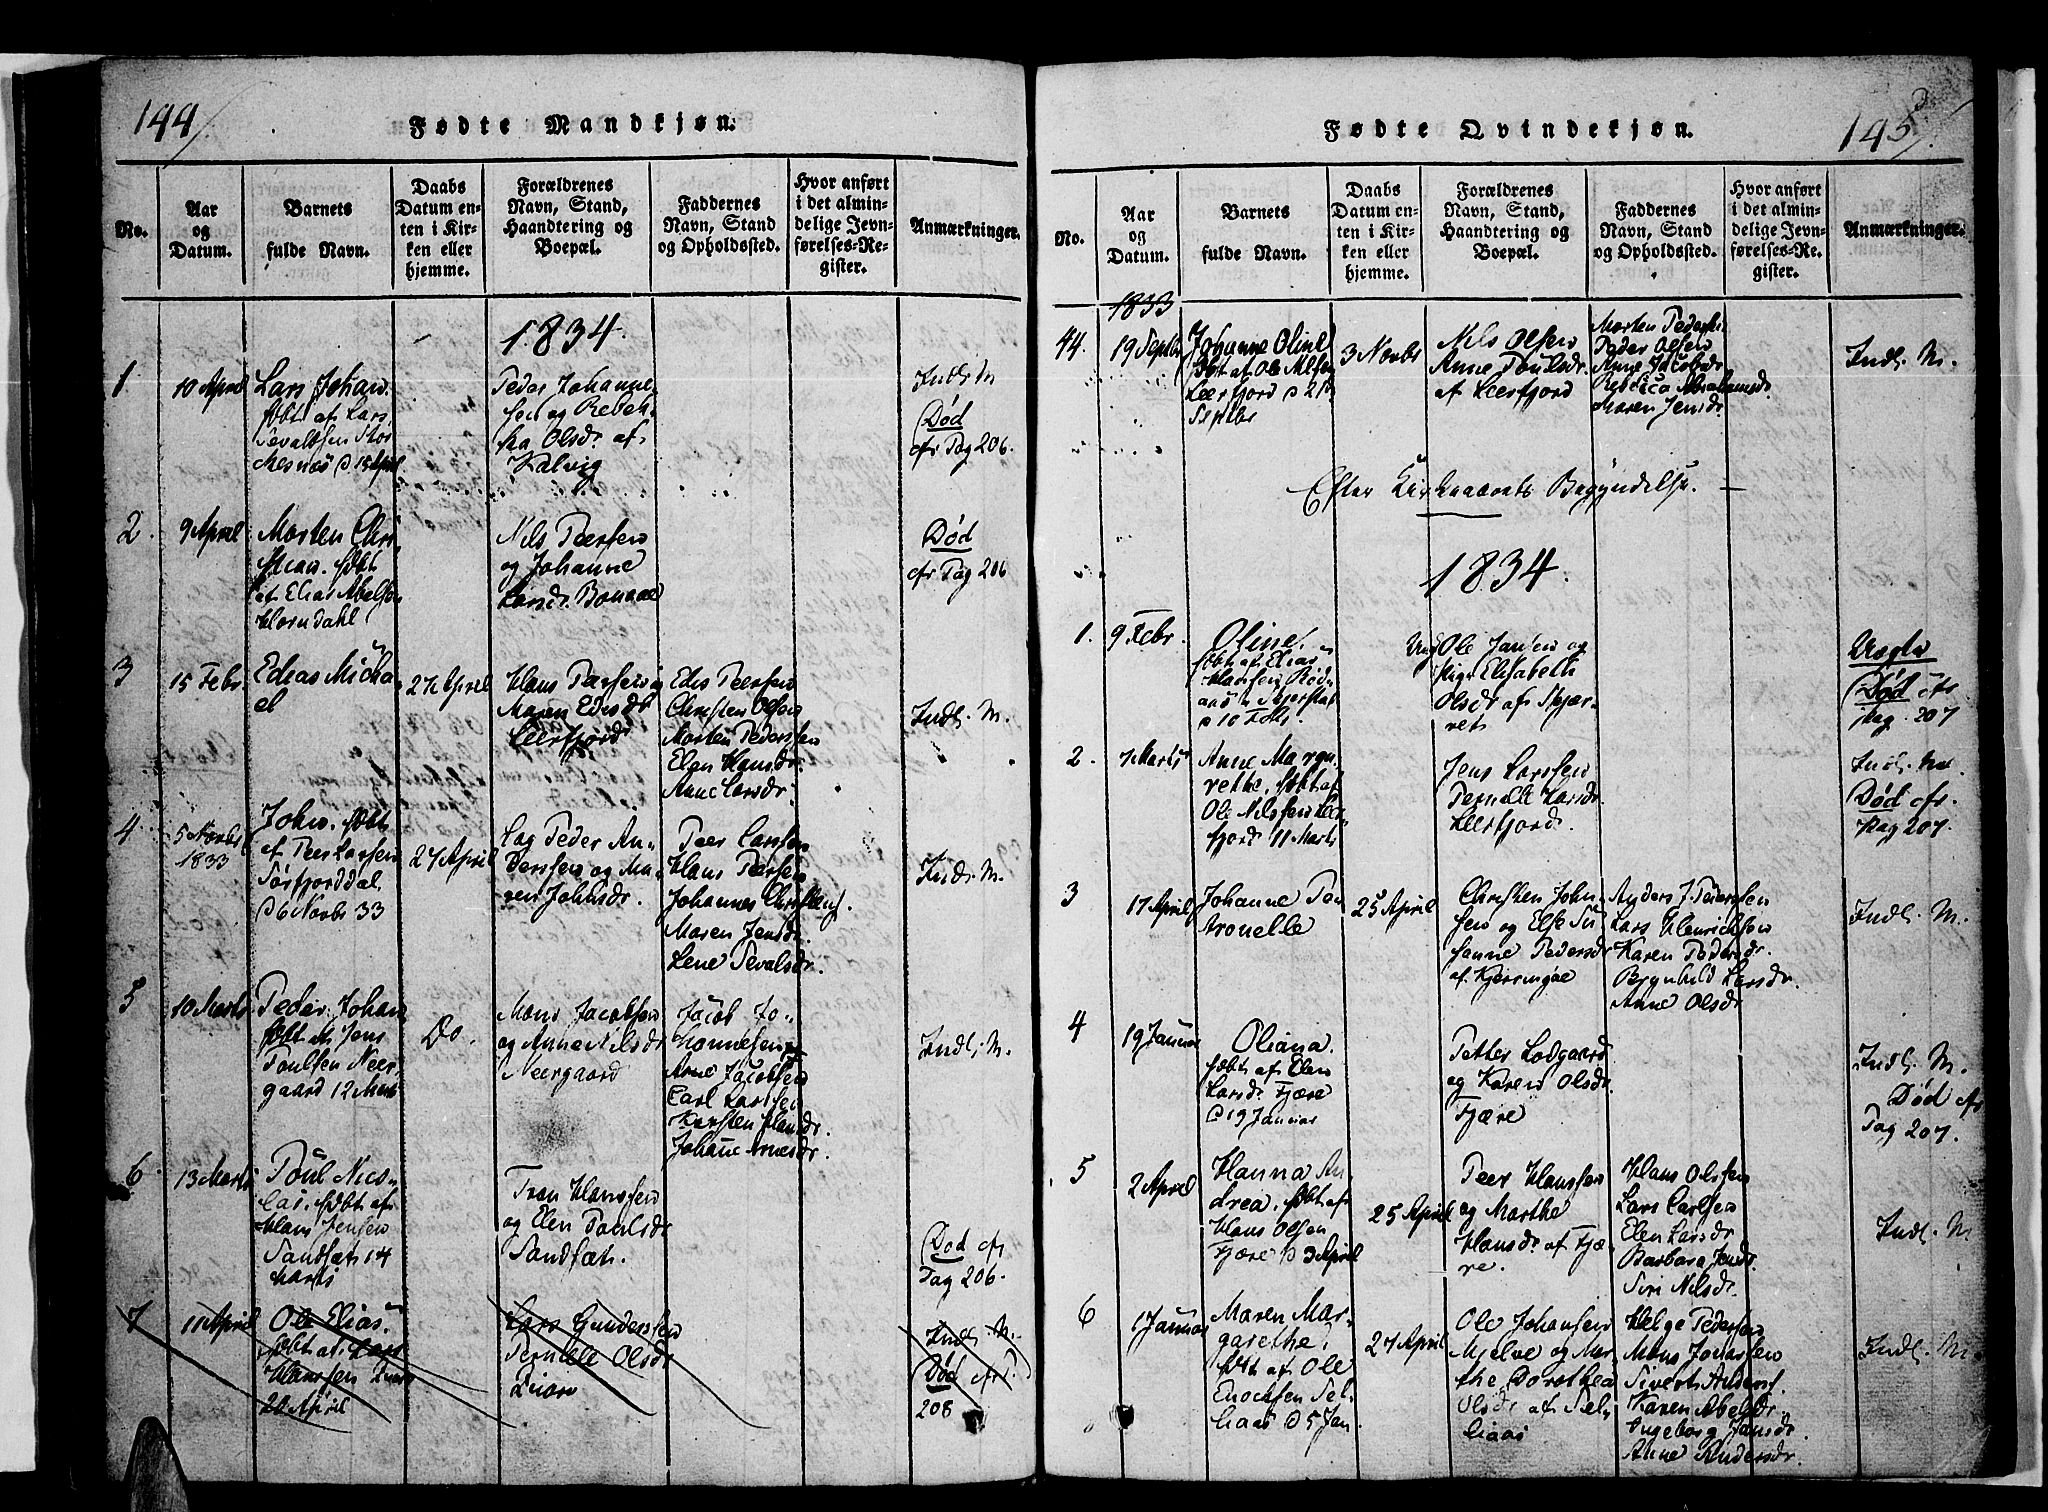 144
Fødte Mandkjøn.
No.
Aar
og
Datum.
Barnets
fulde Navn.
Daabs
Datum en-
ten i Kir-
ken eller
hjemme.
Forældrenes
Navn, Stand,
Haandtering og
Boepæl.
Faddernes
Navn, Stand
og Opholdssted.
Hvor anført
i det almin-
delige Jevn-
førelses-Re-
gister.
Anmærkninger.
1834.
1
10 April
Lars Johan.
døbt af Lars
15 April
Peder Johanne
sen og Rebek-
ka Olsdr. af
Kalvig
Indl. M
Død
cfr Pag 206.
2.
9 April
Morten Chri
stian. døbt
af Elias Abelsen
Horndahl
Nils Peersen
og Johanne
Larsdr.
Død
cfr Pag 206
3
15 Febr.
Edias Micha
el
27 April
Hans Peersen
Maren Edisdr
Leerfjord
Edis Peersen
Christen Olsen
Morten Pedersen
Elen Hansdr.
Anne Larsdr.
Indl. M.
4
5 Novbr
1833
John. døbt
af Peer Larsen
Sørfjorddal
d 6 Novbr 33
27 April
Peder An-
dersen og Ma-
ren Johnsdr.
Peer Larsen
Hans Peersen
Johannes Christens.
Maren Jensdr.
Lene Sevalsdr.
Indl. M.
5
10 Marts
Peder Johan
døbt af Jens
Poulsen Neer-
gaard 12 Marts
Do.
Mons Jacobsen
og Anne Nilsdr
Neergaard
Jacob Jo-
Arne Jacobsen
Carl Larsen
Karsten Hansdr.
Johanne Arnesdr.
Indl. M.
6
13 Marts
Poul Nico-
lai. døbt af
Hans Jensen
Sandsæt 14
Marts
Tron Hanssen
og Elen Poulsdr
Sandsæt.
Død cfr
Pag 206.
7
11 April
Ole Elias.
døbt af Lars
Hanssen
20 April
Lars Gundersen
Pernille Olsdr
Indl. M.
Død cfr P.
208
145
Fødte Qvindekjøn.
No.
Aar
og
Datum.
Barnets
fulde Navn.
Daabs
Datum en-
ten i Kir-
ken eller
hjemme.
Forældrenes
Navn, Stand,
Haandtering og
Boepæl.
Faddernes
Navn, Stand
og Opholdssted.
Hvor anført
i det almin-
delige Jevn-
førelses-Re-
gister.
Anmærkninger.
1833
44.
19 Septbr
Johanne Oline
døbt af Ole Nilsen
Leerfjord d 21
Septbr
3 Novbr
Nils Olsen
Anne Poulsdr
af Leerfjord
Morten Peders.
Peder Olsen
Anne Jacobsdr
Rebecca Abrahamsdr.
Maren Jensdr
Indl. M.
Efter Kirkeaarets Begyndelse.
1834.
1.
9 Febr.
Oline.
døbt af Elias
Hansen
d 10 Febr.
Ung Ole Jansen og
Pige Elisabeth
Olsdr af Skjær-
vet
Uægte
Død cfr
pag. 207
2.
7 Marts
Anne Marga
rethe. døbt af
Ole Nilsen Leer-
fjord 11 Marts
Jens Larsen
Pernille Larsdr.
Leerfjord.
Indl. M.
Død cfr.
Pag 207.
3
17 April
Johanne Pe
tronelle
25 April
Christen John-
sen og Else Su
sanne Pedersdr
af Kjerringøe
Anders J Pedersen
Lars Henrichsen
Karen Pedersdr.
Brynhild Larsdr.
Anne Olsdr
Indl. M.
4
19 Januar
Oliana.
døbt af Elen
Larsdr Fjære
d 19 Januar
Petter Lodgaard
og Karen Olsdr.
Fjære
Indl. M.
Død cfr
Pag 207.
5
2 April
Hanna An
drea. døbt af
Hans Olsen
Fjære d 3 April
25 April
Peer Hansen
og Marthe
Hansdr af Fjæ-
re.
Hans Olsen
Lars Carlsen
Elen Larsdr
Barbara Jensdr.
Siri Nilsdr.
Indl. M
6
1 Januar
Maren Mar-
garethe.
døbt af Ole
Enochsen Sel-
liaas d 5 Jan
27 April
Ole Johansen
Mjelve og Mar-
the Dorothea
Olsdr af Sel-
liaas
Helge Pedersen
Mons Jonassen
Sivert Anders.
Karen Abelsdr.
Ingeborg Jonsdr
Anne Andersdr.
Indl. M.